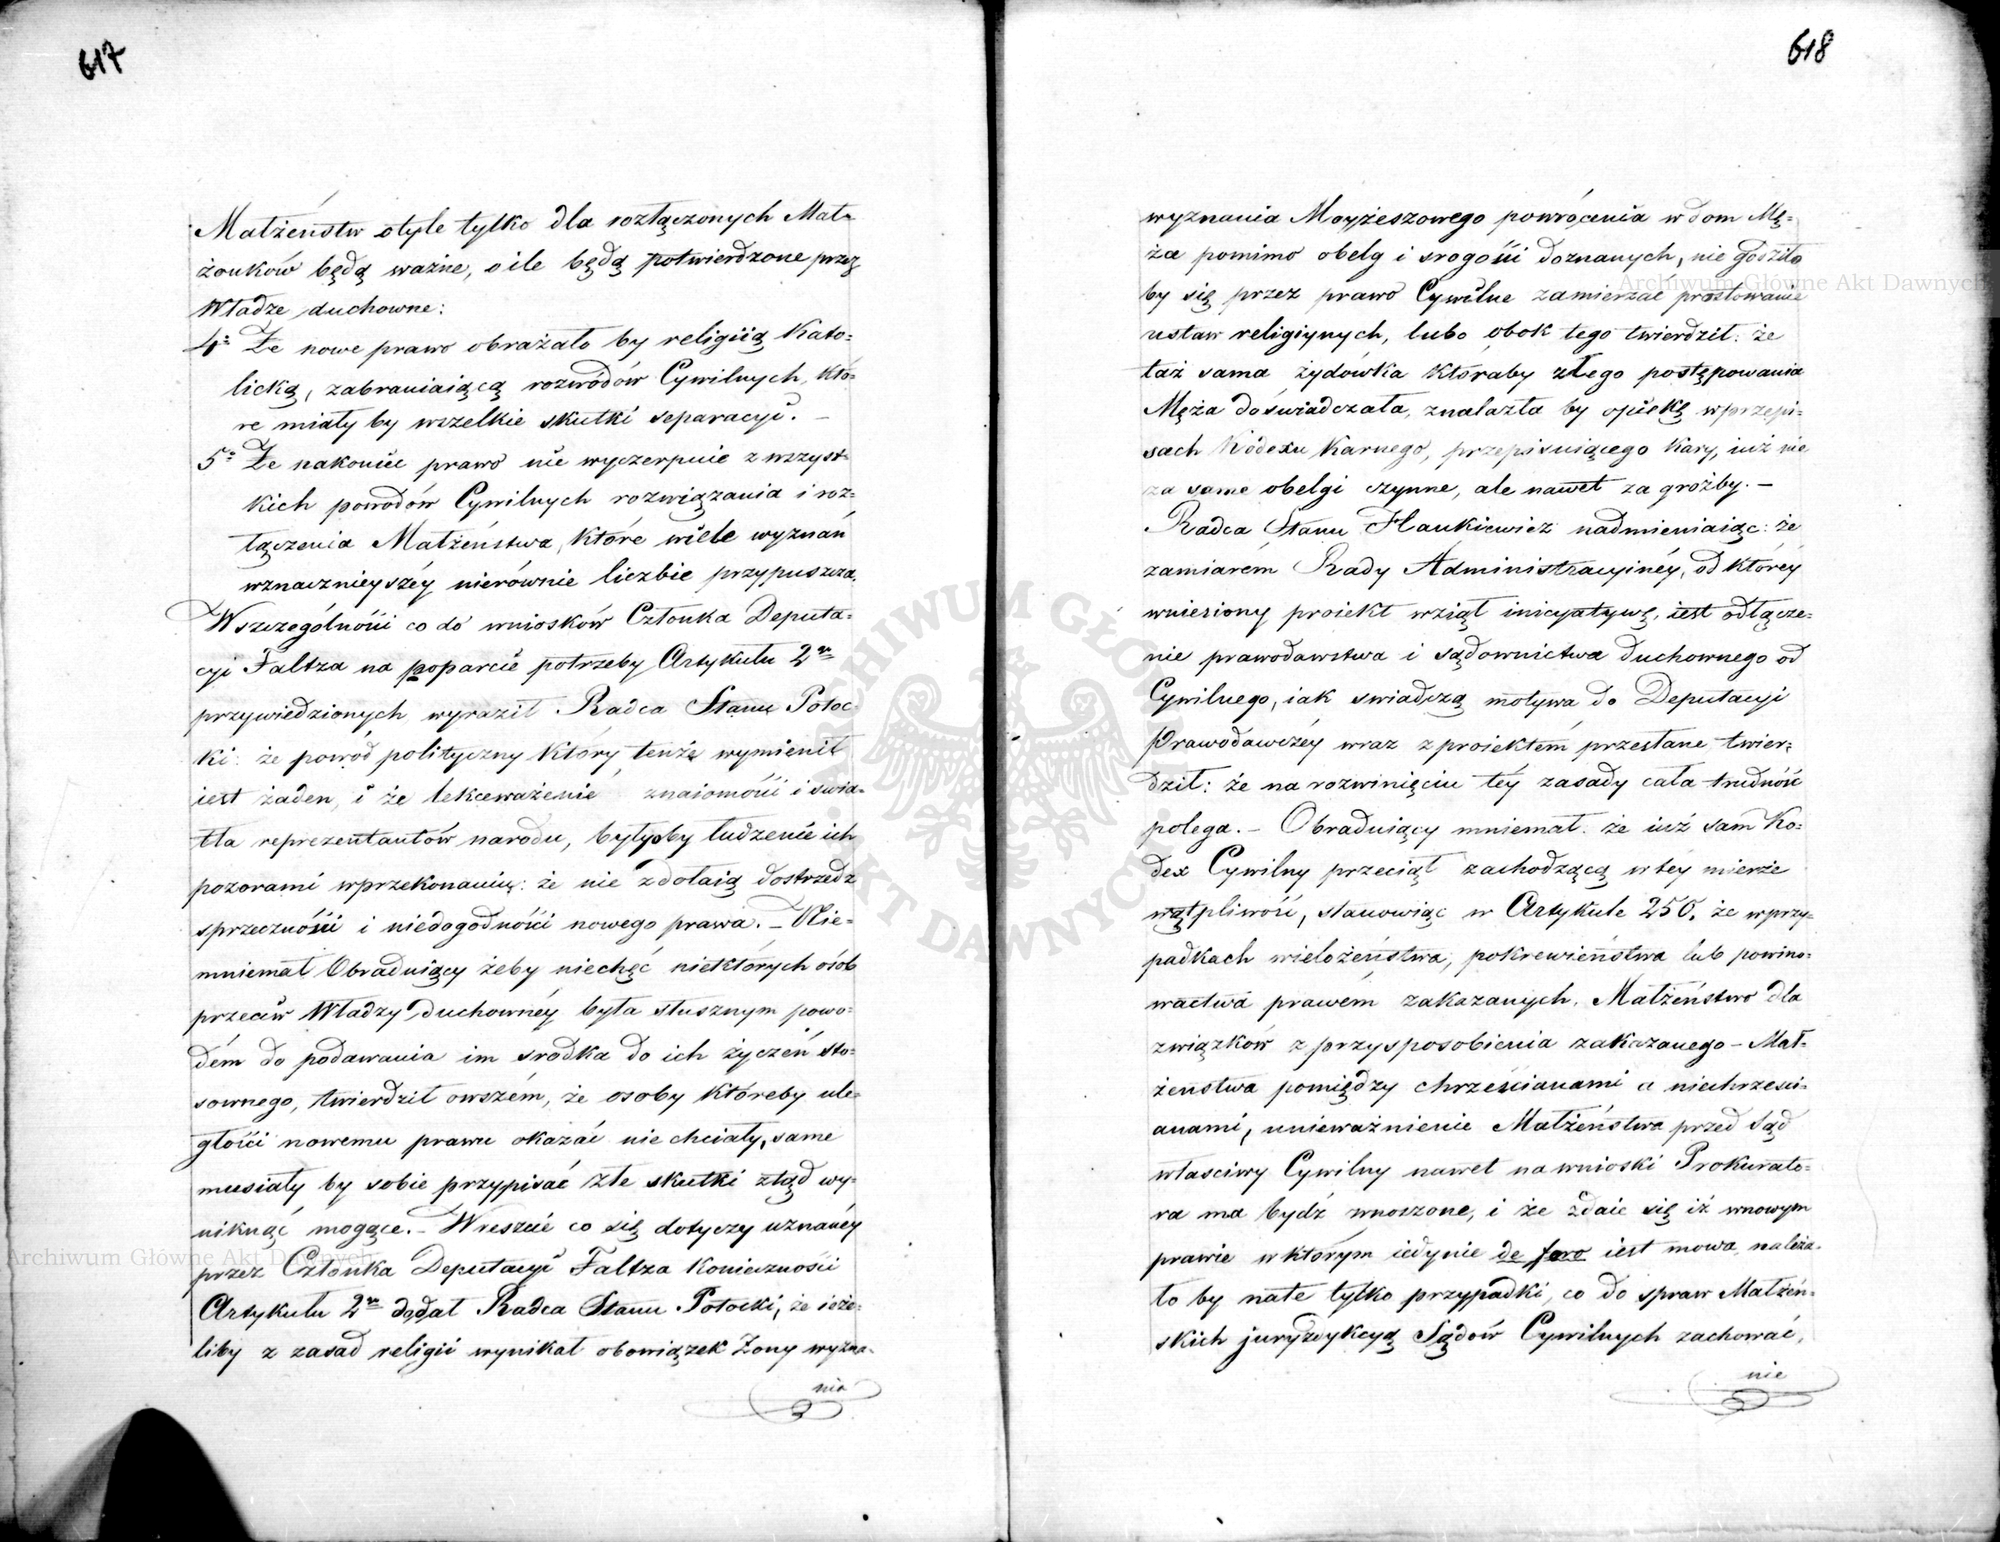 617
Małżeństw otyle tylko dla rozłączonych Mał-
żonków będą ważne, o ile będą potwierdzone przez
Władze duchowne:
4o Że nowe prawo obrażało by religiią Kato-
licką, zabraniaiącą rozwodów Cywilnych, któ-
re miały by wszelkie skutki separacyi. –
5o Że nakoniec prawo nie wyczerpuie z wszyst-
kich powodów Cywilnych rozwiązania i roz-
łączenia Małżeństwa, które wiele wyznań
wznacznieyszéy nierównie liczbie przypuszcza.
Wszczególności co do wniosków Członka Deputa-
cyi Faltza na poparcie potrzeby Artykułu 2go
przywiedzionych wyraził Radca Stanu Potoc-
ki: że powód polityczny który tenże wymienił
iest żaden, i że lekceważenie znaiomości i świa-
tła reprezentantów narodu, byłyby łudzenie ich
pozorami wprzekonaniu: że nie zdołaią dostrzedz
sprzeczności i niedogodności nowego prawa. – Nie-
mniemał Obraduiący żeby niechęć niektórych osób
przeciw Władzy duchownéy była słusznym powo-
dém do podawania im środka do ich życzeń sto-
sownego, twierdził owszém, że osoby któreby ule-
głości nowemu prawu okazać nie chciały, same
musiały by sobie przypisać złe skutki ztąd wy-
niknąć mogące. – Wreszcie co się dotyczy uznanéy
przez Członka Deputacyi Faltza konieczności
Artykułu 2go dodał Radca Stanu Potocki, że ieże-
liby z zasad religii wynikał obowiązek Żony wyzna-
nia
618
wyznania Moyżeszowego powrócenia w dom Mę-
ża pomimo obelg i srogości doznanych, nie godziło
by się przez prawo Cywilne zamierzać prostowanie
ustaw religiynych, lubo obok tego twierdził: że
taż sama żydówka któraby złego postępowania
Męża doświadczała, znalazła by opiekę wprzepi-
sach Kodexu Karnego, przepisuiącego kary, iuż nie
za same obelgi czynne, ale nawet za groźby. –
Radca Stanu Hankiewicz nadmieniaiąc: że
zamiarém Rady Administracyinéy, od któréy
wniesiony proiekt wziął inicyatywę, iest odłącze-
nie prawodawstwa i sądownictwa duchownego od
Cywilnego, iak świadczą motywa do Deputacyi
Prawodawczéy wraz z proiektém przesłane, twier-
dził: że na rozwinięciu téy zasady cała trudność
polega. – Obraduiący mniemał: że iuż sam Ko-
dex Cywilny przeciął zachodzącą w téy mierze
wątpliwość, stanowiąc w Artykule 250. że wprzy-
padkach wielożeństwa, pokrewieństwa lub powino-
wactwa prawem zakazanych, Małżeństwo dla
związków z przysposobienia zakazanego – Mał-
żeństwa pomiędzy chrześcianami a niechrześci-
anami, unieważnienie Małżeństwa przed Sąd
właściwy Cywilny nawet na wnioski Prokurato-
ra ma bydź wnoszone, i że zdaie się iż wnowym
prawie w którym iedynie de foro iest mowa, należa-
ło by nate tylko przypadki, co do spraw Małżeń-
skich juryzdykcyą Sądów Cywilnych zachować,
nie
Archiwum Główne Akt Dawnych
Archiwum Główne Akt Dawnych
ARCHIWUM GŁÓWNE AKT DAWNYCH